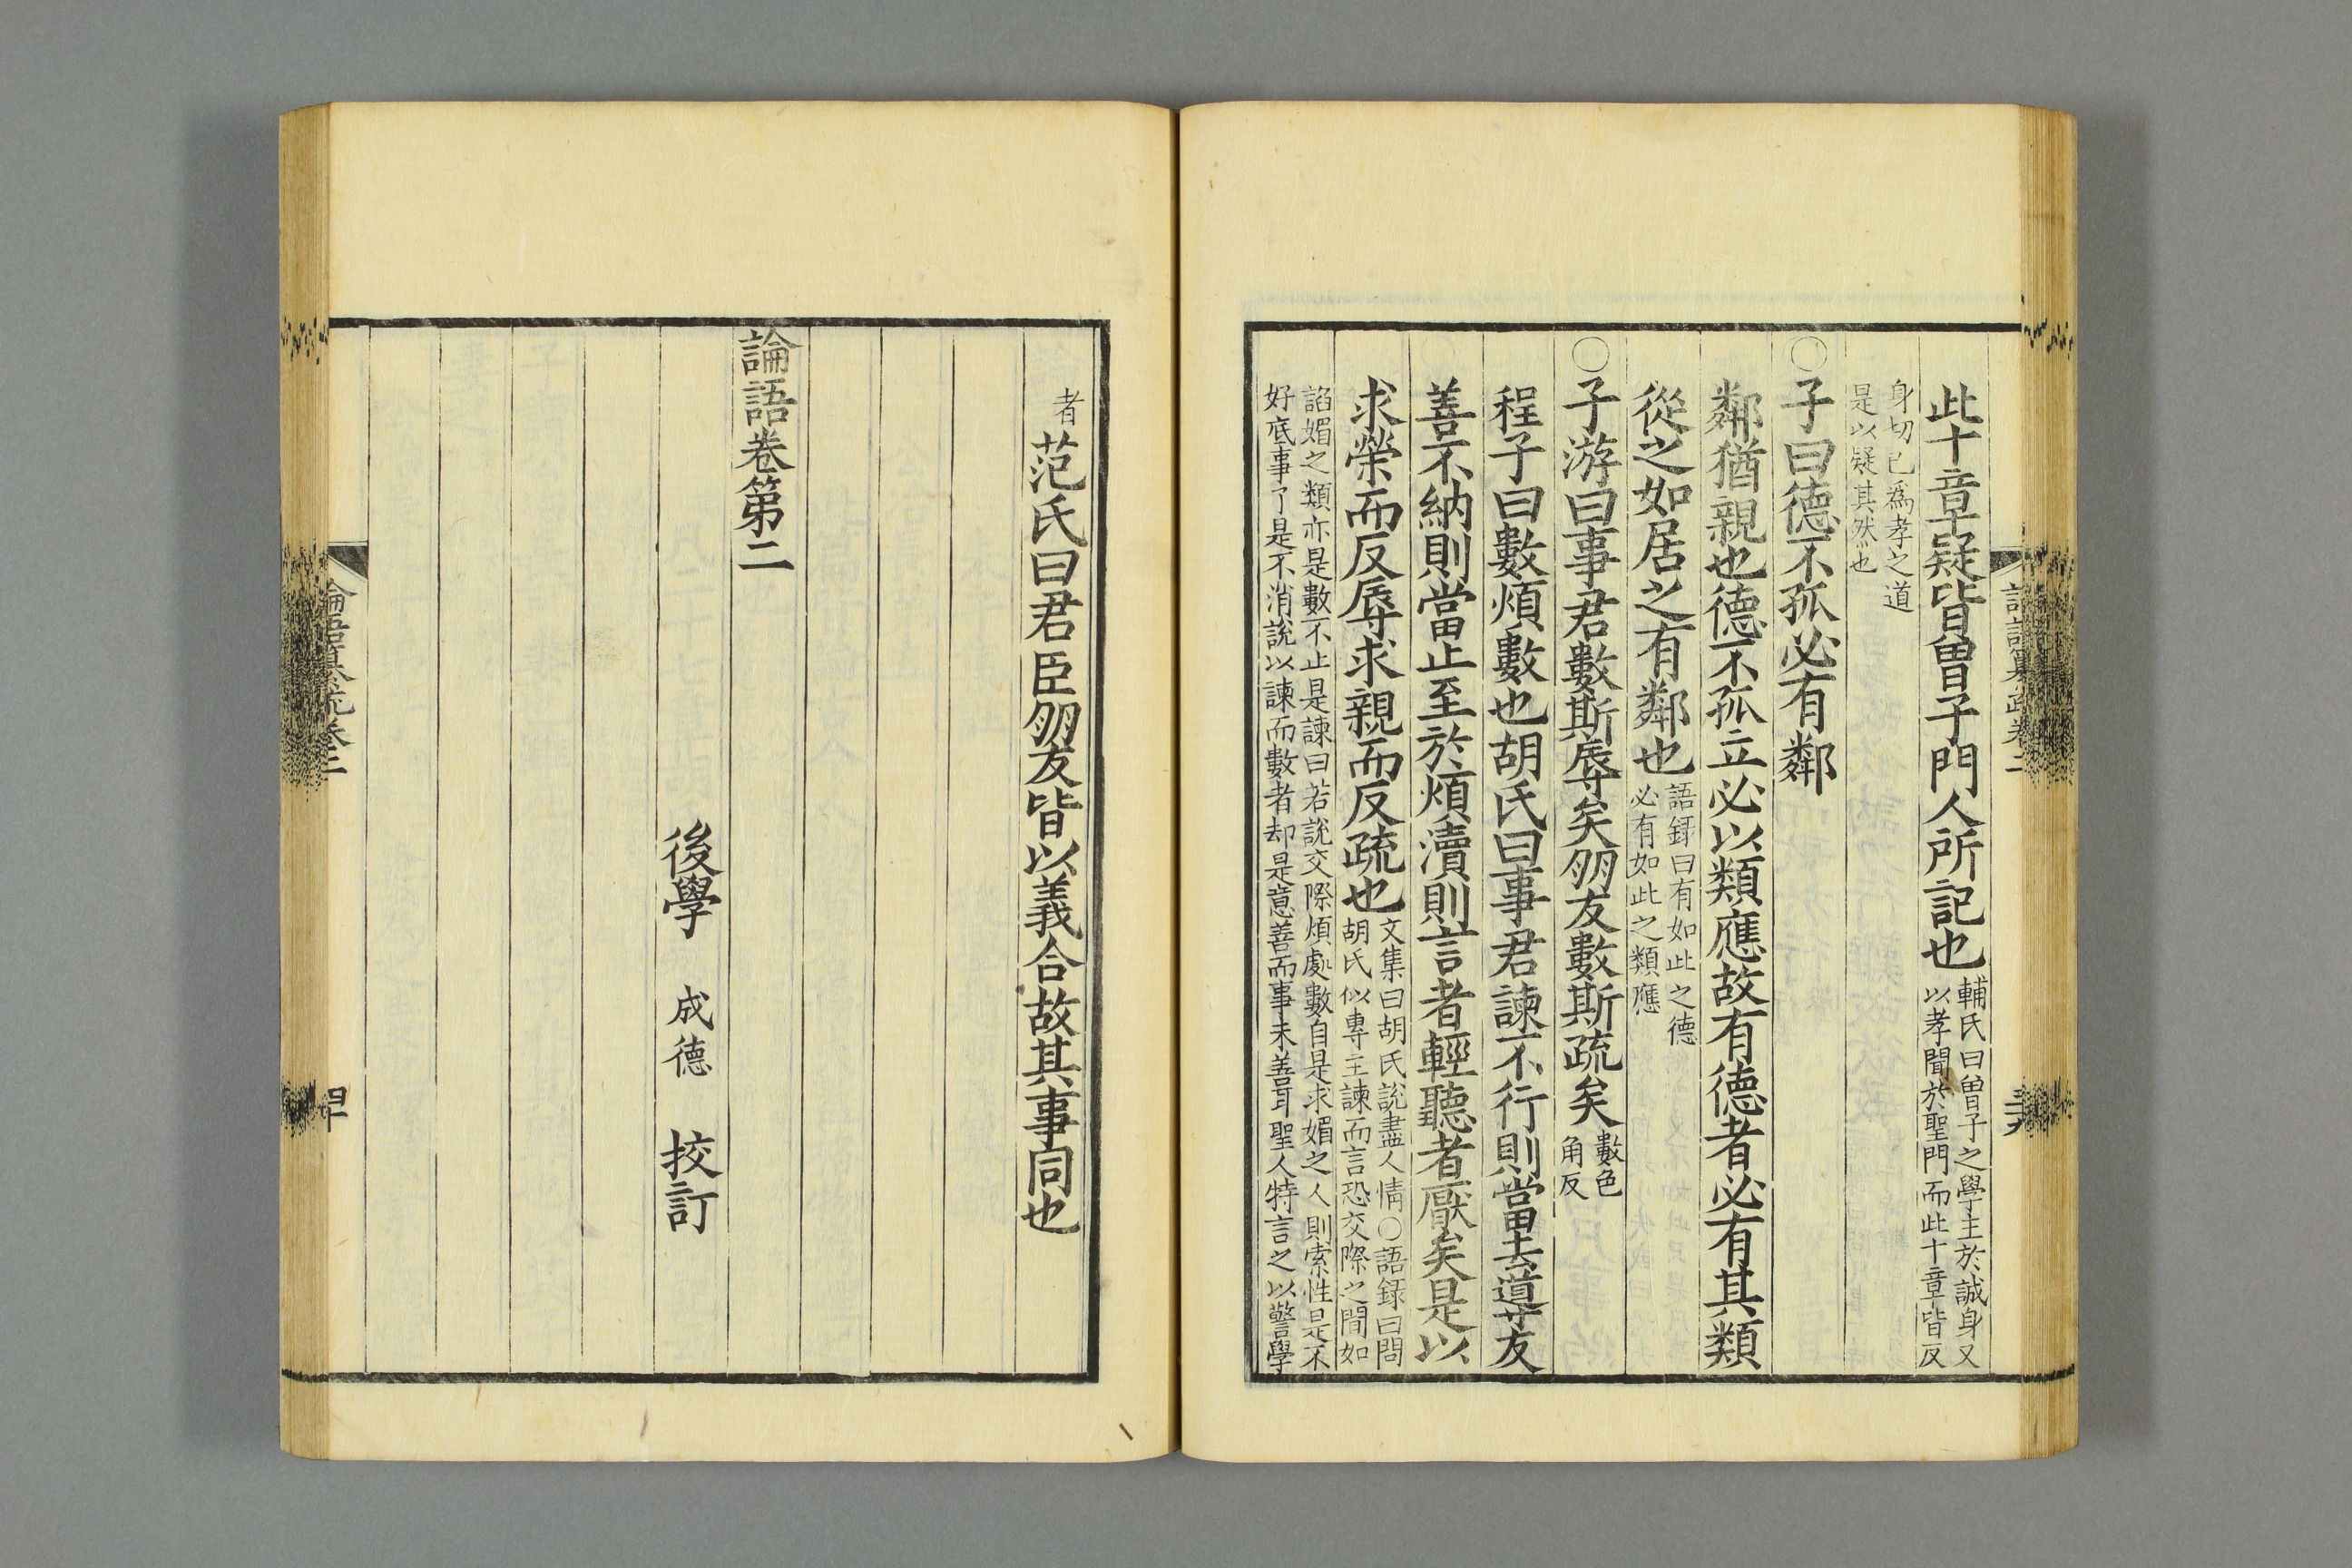 此十章疑皆曾子門人所記也輔氏曰曾子之學主於誠身又
以孝聞於聖門而此十章皆反
身切已爲孝之道
是以疑其然也
○子曰德不孤必有鄰
鄰猶親也德不孤立必以類應故有德者必有其類
從之如居之有鄰也語録曰有如此之德
必有如此之類應
○子游曰事君數斯辱矣朋友數斯疏矣數色
角反
程子曰數煩數也胡氏曰事君諫不行則當去道導友
善不納則當止至於煩瀆則言者輕聽者厭矣是以
求榮而反辱求親而反疏也文集曰胡氏說盡人情○語録曰問
胡氏似專主諫而言恐交際之間如
諂媚之類亦是數不止是諫曰若説交際煩處數自是求媚之人則索性是不
好底事了是不消説以諫而數者却是意善而事未善耳聖人特言之以警學
者范氏曰君臣朋友皆以義合故其事同也
論語卷第二
後學 成德 挍訂
論語纂疏卷二
四十